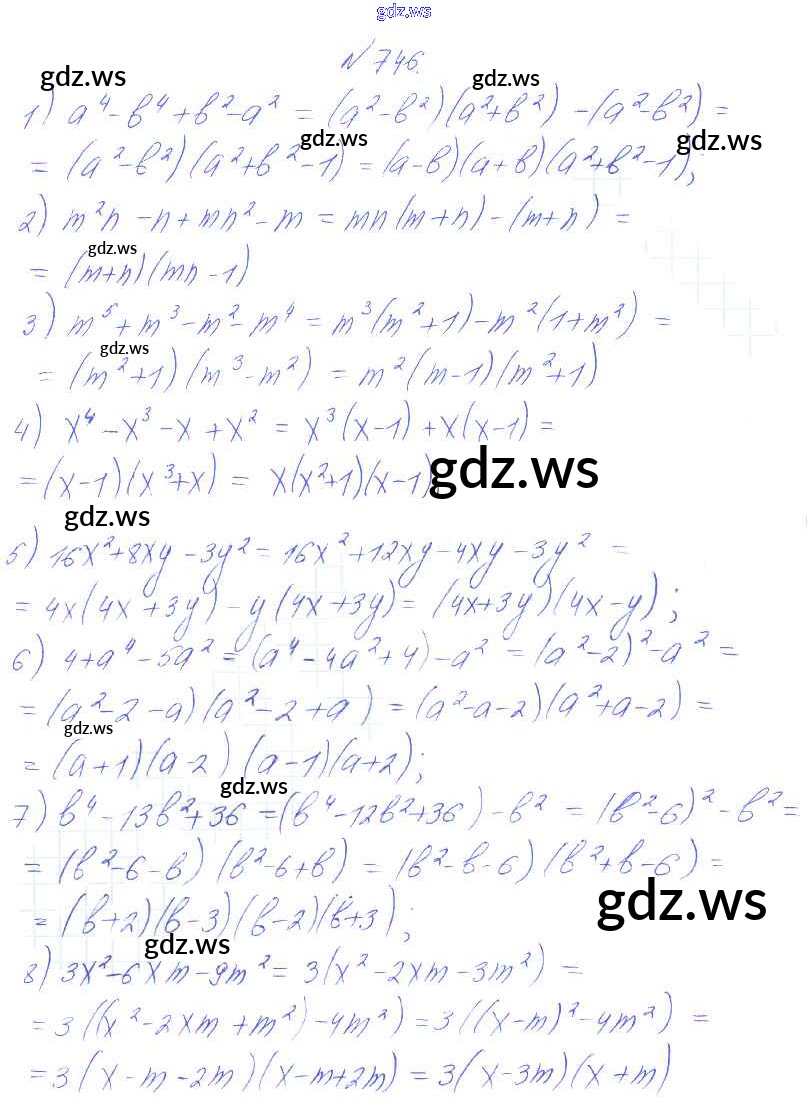 gdz.ws
N 746.
gdz.ws gdz.ws
1) a⁴-b⁴+b²-a² = (a²-b²)(a²+b²)-(a²-b²)=
gdz.ws gdz.ws
= (a²-b²)(a²+b²-1) = (a-b)(a+b)(a²+b²-1);
2) m²n-n+mn²-m = mn(m+n)-(m+n) =
gdz.ws
= (m+n)(mn-1)
3) m⁵+m³-m²-m⁴ = m³(m²+1)-m²(1+m²) =
gdz.ws
= (m²+1)(m³-m²) = m²(m-1)(m²+1)
4) x⁴-x³-x+x² = x³(x-1)+x(x-1)=
=(x-1)(x³+x) = x(x²+1)(x-1)
gdz.ws
gdz.ws
5) 16x²+8xy-3y²=16x²+12xy-4xy-3y² =
= 4x(4x+3y)-y(4x+3y)= (4x+3y)(4x-y);
6) 4+a⁴-5a² = (a⁴-4a²+4)-a² = (a²-2)²-a² =
=(a²-2-a)(a²-2+a) = (a²-a-2)(a²+a-2) =
gdz.ws
= (a+1)(a-2)(a-1)(a+2);
gdz.ws
7) b⁴-13b²+36=(b⁴-12b²+36)-b² = (b²-6)²-b²=
= (b²-6-b)(b²-6+b) = (b²-b-6)(b²+b-6)=
gdz.ws
= (b+2)(b-3)(b-2)(b+3);
gdz.ws
8) 3x²-6xm-9m²= 3(x²-2xm-3m²) =
= 3((x²-2xm+m²)-4m²)=3((x-m)²-4m²) =
=3(x-m-2m)(x-m+2m) = 3(x-3m)(x+m)